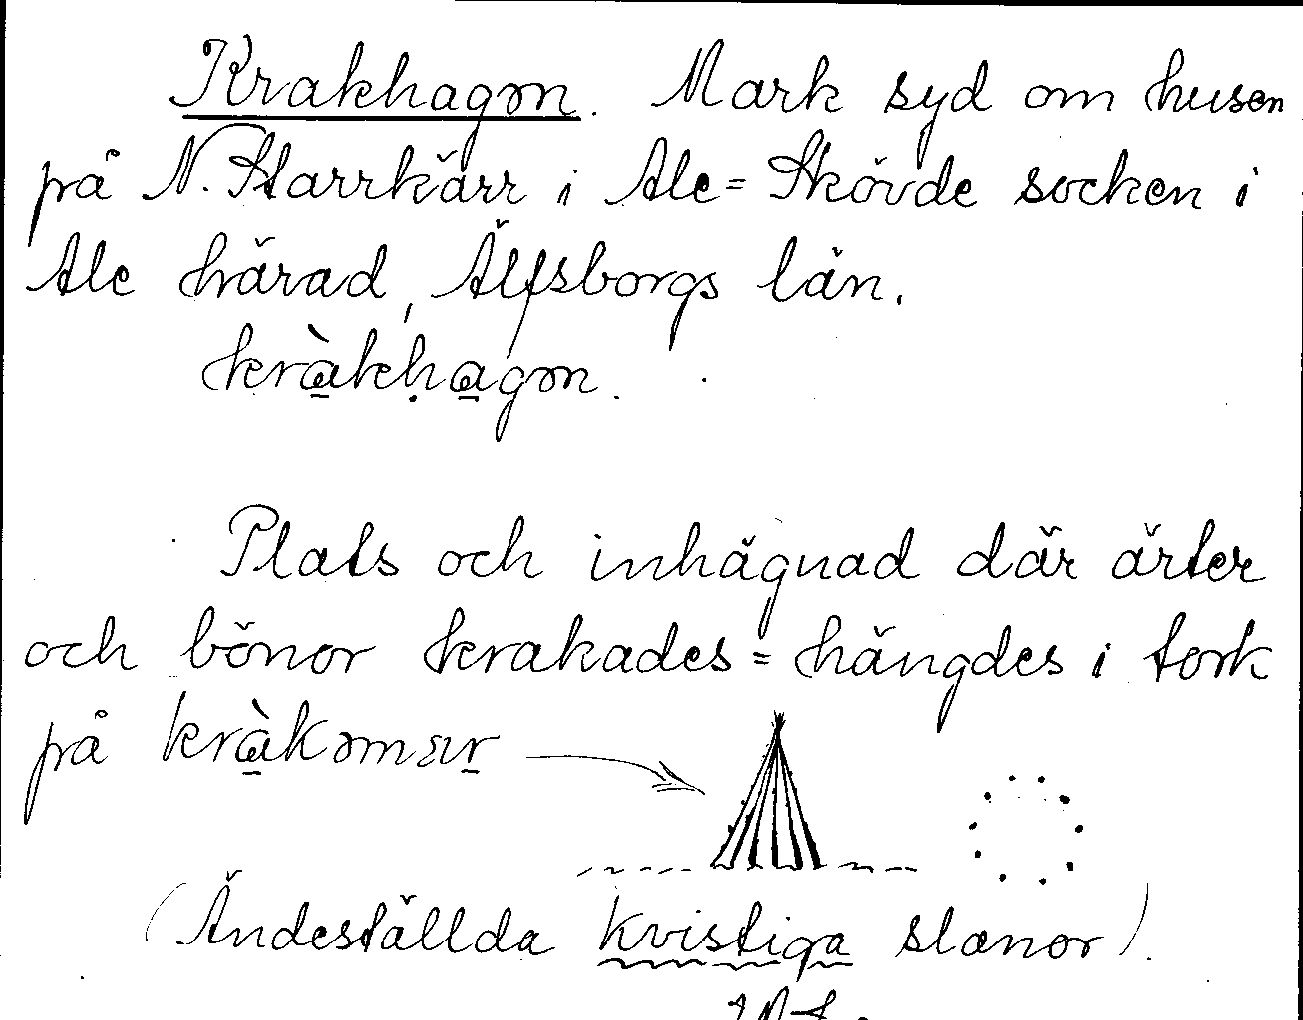 Krakhagon. Mark syd om husen
på N. Starrkärr i Ale=Skövde socken i
Ale härad, Älfsborgs län.
kràkhagon.
Plats och inhägnad där ärter
och bönor krakades = hängdes i tork
på
(Ändeställda kvistiga slanor).